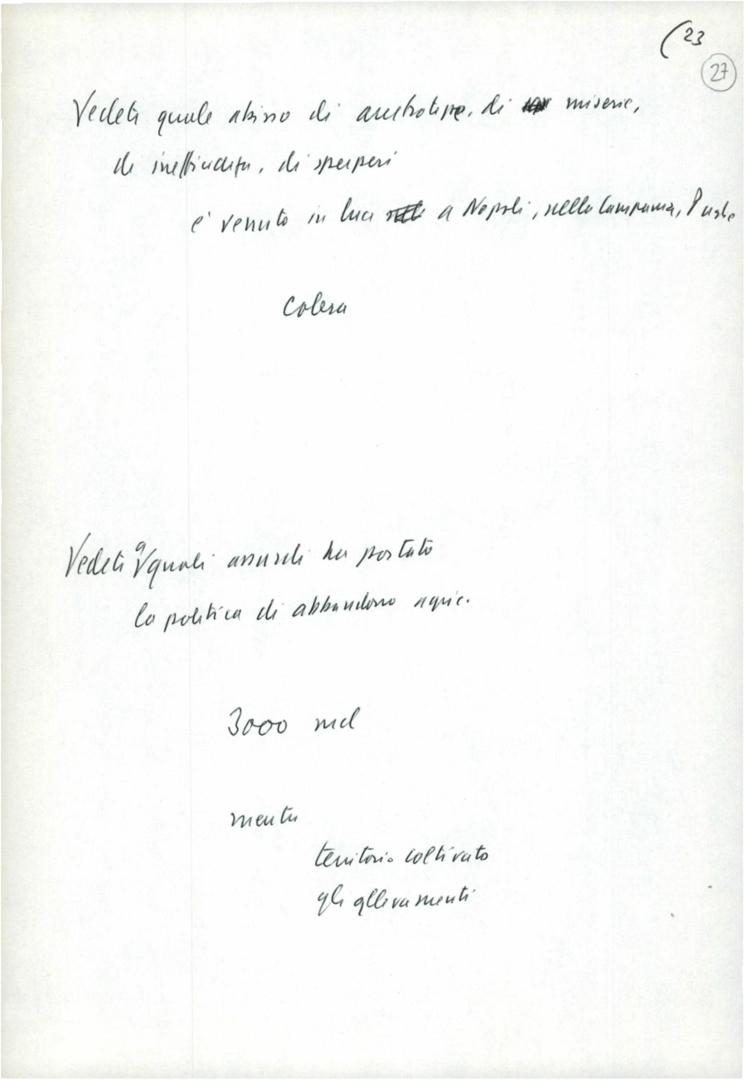 (23
27
Vedete quale abisso di arretratezze, di miserie,
di inefficienza, di sperperi
è venuto in luce a Napoli, nella Campania, Puglie
Colera
Vedete a quali assurdi ha portato
la politica di abbandono agric.
3000 mld
mentre
territorio coltivato
gli allevamenti